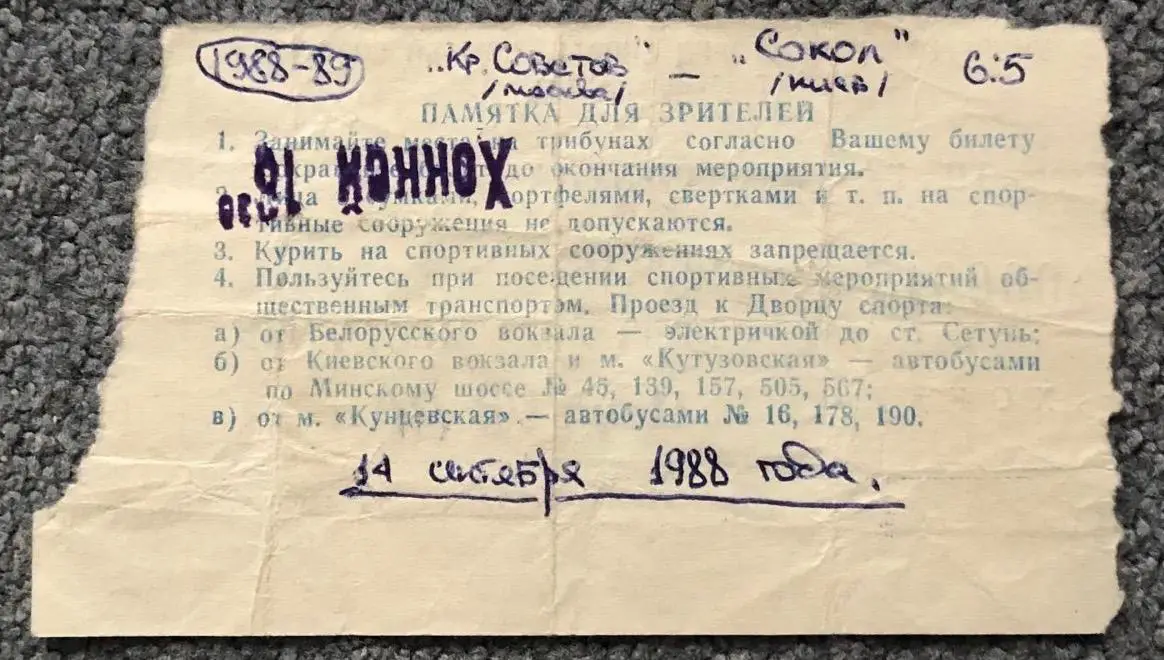 1988-89 „Кр. Советов" — „Сокол" 6:5
/москва/ /киев/
ПАМЯТКА ДЛЯ ЗРИТЕЛЕЙ
1. Занимайте места на трибунах согласно Вашему билету
до окончания мероприятия.
сумками, портфелями, свертками и т. п. на спор-
тивные сооружения не допускаются.
3. Курить на спортивных сооружениях запрещается.
4. Пользуйтесь при посещении спортивных мероприятий об-
щественным транспортом. Проезд к Дворцу спорта:
а) от Белорусского вокзала — электричкой до ст. Сетунь;
б) от Киевского вокзала и м. «Кутузовская» — автобусами
по Минскому шоссе № 45, 139, 157, 505, 567;
в) от м. «Кунцевская» — автобусами № 16, 178, 190.
14 сентября 1988 года.